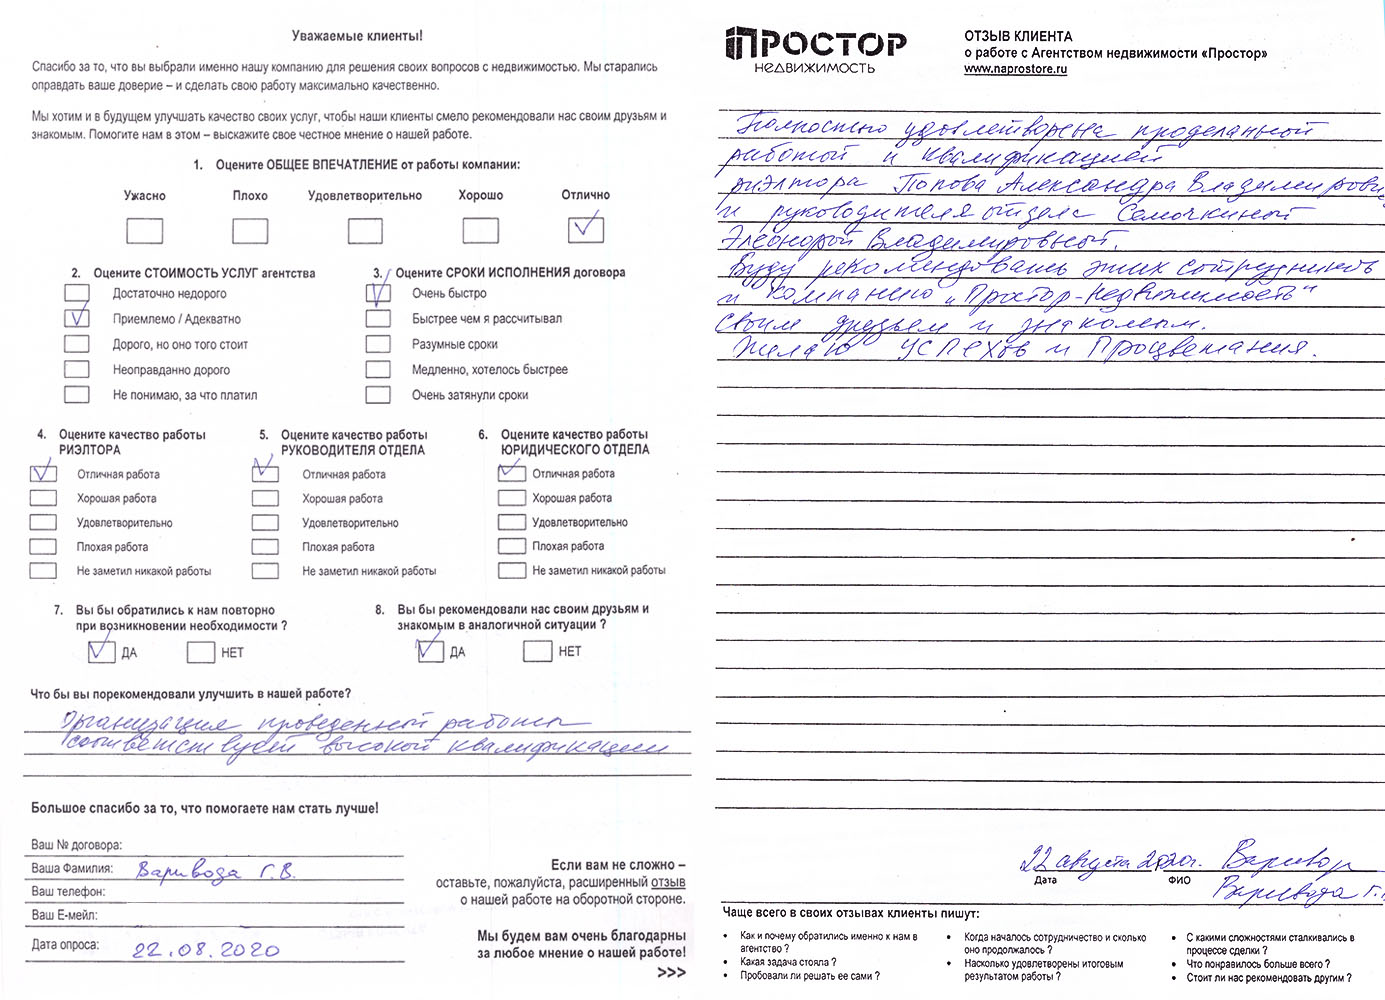 Уважаемые клиенты!
Спасибо за то, что вы выбрали именно нашу компанию для решения своих вопросов с недвижимостью. Мы старались
оправдать ваше доверие – и сделать свою работу максимально качественно.
Мы хотим и в будущем улучшать качество своих услуг, чтобы наши клиенты смело рекомендовали нас своим друзьям и
знакомым. Помогите нам в этом – выскажите свое честное мнение о нашей работе.
1. Оцените ОБЩЕЕ ВПЕЧАТЛЕНИЕ от работы компании:
Ужасно Плохо Удовлетворительно Хорошо Отлично
2. Оцените СТОИМОСТЬ УСЛУГ агентства
Достаточно недорого
Приемлемо / Адекватно
Дорого, но оно того стоит
Неоправданно дорого
Не понимаю, за что платил
3. Оцените СРОКИ ИСПОЛНЕНИЯ договора
Очень быстро
Быстрее чем я рассчитывал
Разумные сроки
Медленно, хотелось быстрее
Очень затянули сроки
4. Оцените качество работы
РИЭЛТОРА
Отличная работа
Хорошая работа
Удовлетворительно
Плохая работа
Не заметил никакой работы
5. Оцените качество работы
РУКОВОДИТЕЛЯ ОТДЕЛА
Отличная работа
Хорошая работа
Удовлетворительно
Плохая работа
Не заметил никакой работы
6. Оцените качество работы
ЮРИДИЧЕСКОГО ОТДЕЛА
Отличная работа
Хорошая работа
Удовлетворительно
Плохая работа
Не заметил никакой работы
7. Вы бы обратились к нам повторно
при возникновении необходимости ?
ДА НЕТ
8. Вы бы рекомендовали нас своим друзьям и
знакомым в аналогичной ситуации ?
ДА НЕТ
Что бы вы порекомендовали улучшить в нашей работе?
Организация проведенной работы
соответствует высокой квалификации
Большое спасибо за то, что помогаете нам стать лучше!
Ваш № договора:
Ваша Фамилия: Варивода Г.В.
Ваш телефон:
Ваш Е-мейл:
Дата опроса: 22.08.2020
Если вам не сложно –
оставьте, пожалуйста, расширенный отзыв
о нашей работе на оборотной стороне.
Мы будем вам очень благодарны
за любое мнение о нашей работе!
>>>
ПРОСТОР
НЕДВИЖИМОСТЬ
ОТЗЫВ КЛИЕНТА
о работе с Агентством недвижимости «Простор»
www.naprostore.ru
Полностью удовлетворена проделанной
работой и квалификацией
риэлтора Попова Александра Владимирови
и руководителя отдела Семочкиной
Элеонорой Владимировной.
Буду рекомендовать этих сотрудников
и компанию „Простор-недвижимость"
своим друзьям и знакомым.
Желаю успехов и Процветания.
22 августа 2020г. Варивод
Дата ФИО
Варивода Г.
Чаще всего в своих отзывах клиенты пишут:
• Как и почему обратились именно к нам в
агентство ?
• Какая задача стояла ?
• Пробовали ли решать ее сами ?
• Когда началось сотрудничество и сколько
оно продолжалось ?
• Насколько удовлетворены итоговым
результатом работы ?
• С какими сложностями сталкивались в
процессе сделки ?
• Что понравилось больше всего ?
• Стоит ли нас рекомендовать другим ?